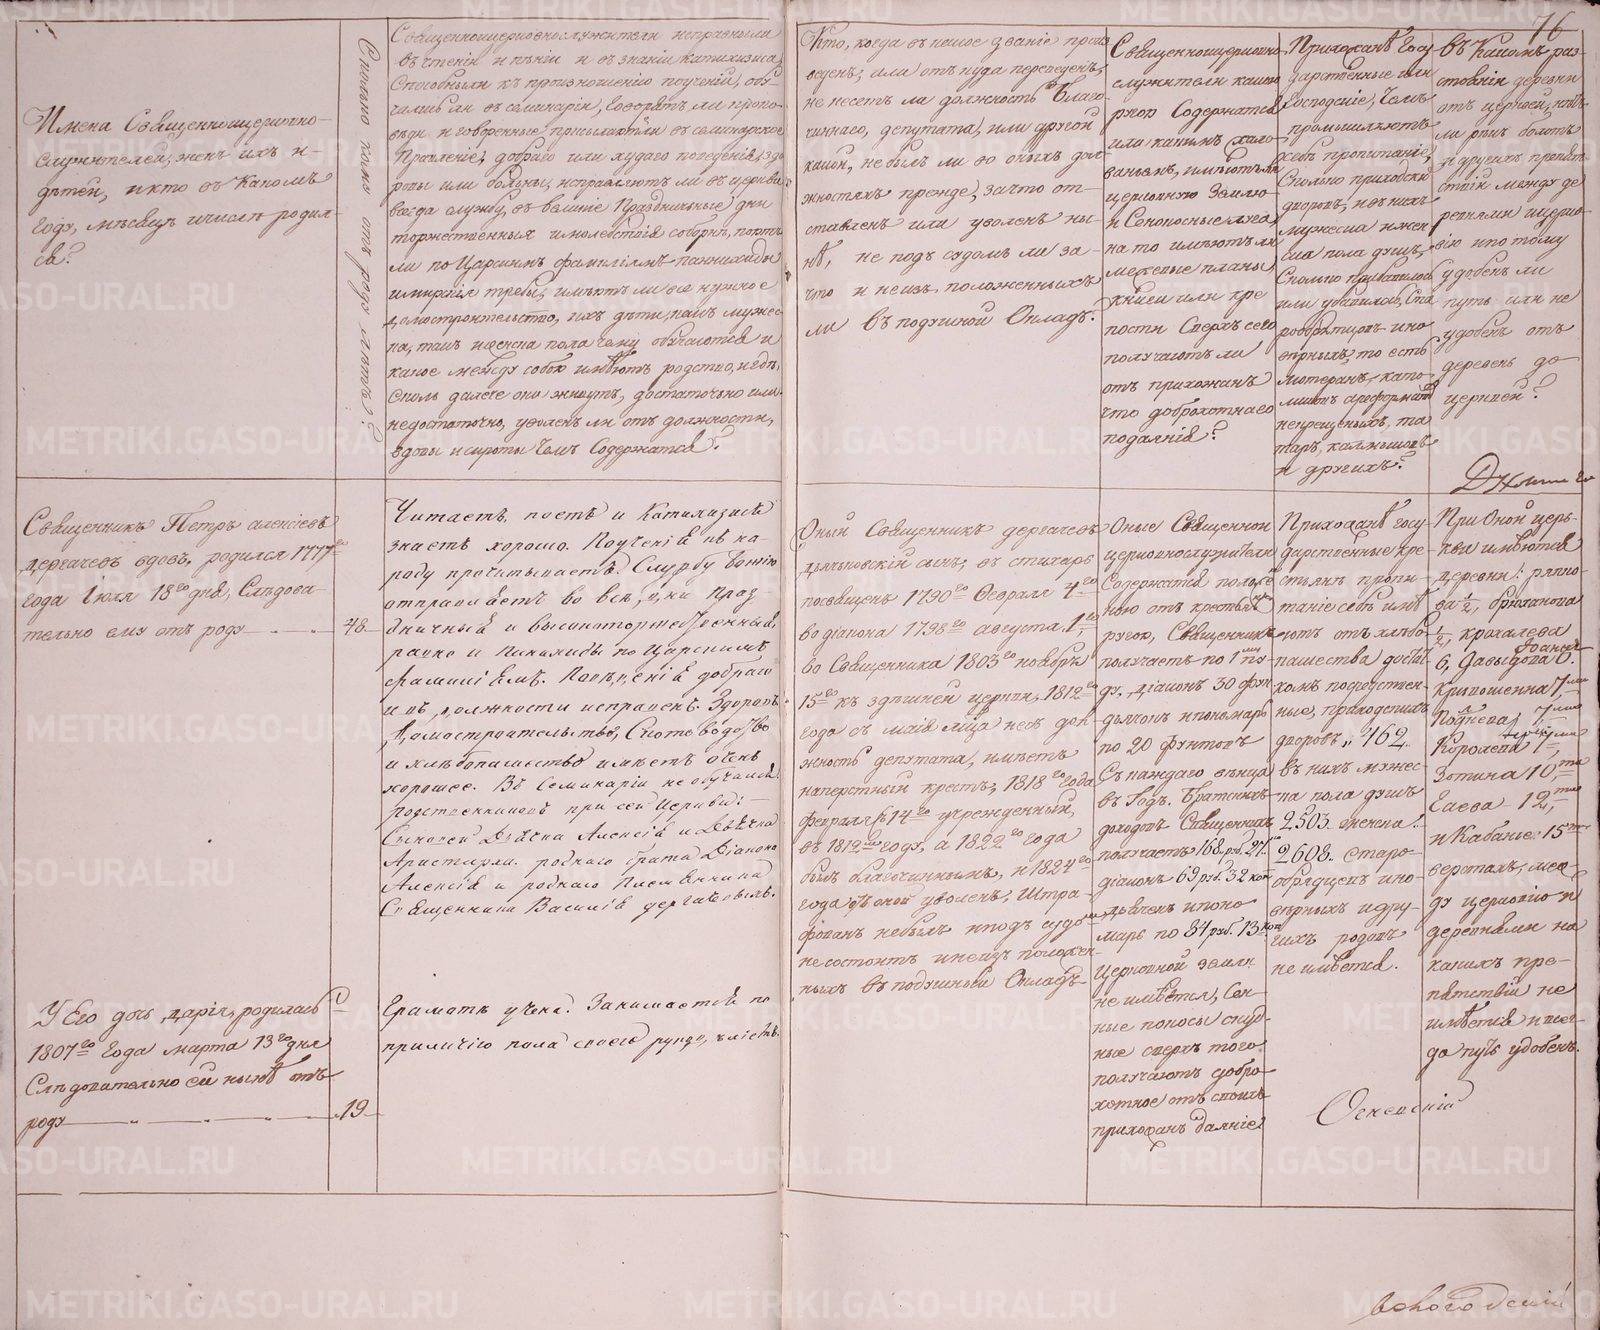 76
Имена Священноцерковно-
служителей, женъ ихъ и
дѣтей, и кто въ какомъ
году, мѣсяцѣ и числѣ родил-
ся?
Сколько кому отъ роду лѣтъ?
Священноцерковнослужители исправны ли
въ чтеніи и пѣніи и въ знаніи катихизиса,
Способны ли къ произношенію поученій, обу-
чались ли въ семинаріи, говорятъ ли пропо-
вѣди и говоренные присылаютъ ли въ семинарское
Правленіе, добраго или худаго поведенія, здо-
ровы или больны, исправляютъ ли въ церкви
всегда службу, въ великіе Праздничные дни
торжественныя и молебствія соборнѣ, поютъ
ли по Царскимъ фамиліямъ паннихиды
и мирскія требы, имѣютъ ли все нужное
домостроительство, ихъ дѣти, какъ мужес-
ка, такъ и женска пола чему обучаются и
какое между собою имѣютъ родство, и едѣ,
столь далече оно живутъ, достаточно или
недостаточно, уволенъ ли отъ должности,
вдовы и сироты чемъ Содержатся?
Кто, когда въ какое званіе произ-
веденъ, или откуда переведенъ,
не несетъ ли должность Благо-
чиннаго, депутата, или другой
какой, не былъ ли во оныхъ дол-
жностяхъ прежде, за что от-
ставленъ или уволенъ ны-
нѣ, не подъ судомъ ли за-
что и не изъ положенныхъ
ли въ подушной Окладъ?
Священноцерковно-
служители какою
ругою Содержатся
или какимъ жало-
ваньемъ, имѣютъ ли
церковную Землю
и Сенокосные луга,
на то имѣютъ ли
межевые планы,
книги или кре
пости Сверхъ сего
получаютъ ли
отъ прихожанъ
что доброхотнаго
подаянія?
Прихожанѣ Госу
дарственные или
Господскіе, Чемъ
промышляютъ
себѣ пропитаніе,
Сколько приходскихъ
дворовъ, и въ нихъ
мужеска и жен
ска пола душъ,
Сколько прибавилось
или убавилось, Ста
рообрядцовъ ино
вѣрныхъ, то есть
лютеранъ, като
ликовъ, реформатъ
некрещеныхъ, та
таръ, калмыковъ
и другихъ?
Въ Какомъ раз-
стояніи деревни
от церкви, нѣтъ
ли рѣкъ болотъ
и другихъ препят
ствій между де
ревнями и церко-
вію и потому
удобенъ ли
путь или не
удобенъ отъ
деревень до
церквей?
Священникъ Петръ Алексѣевъ
Дергачевъ вдовъ, родился 1777го
года Іюля 18го дня, Слѣдова-
тельно ему отъ роду
48
Читаетъ, поетъ и Катихизисъ
знаетъ хорошо. Поученія къ на-
роду прочитываетъ. Службу Божію
отправляетъ во всѣ дни Праз-
дничныя и высокоторжественныя,
равно и Панихиды по Царскимъ
фамиліямъ. Поведенія добраго
и въ должности исправенъ. Здоровъ.
Домостроительство, Скотоводство
и хлѣбопашество имѣетъ очень
хорошее. Въ Семинаріи не обучался.
Родственниковъ при сей Церкви:
Алексія и Дьячка
Аристарха, роднаго брата Діакона
Алексія и роднаго Племянника
Священника Василія Дергачевыхъ.
Оный Священникъ Дергачевъ
дьячьковскій сынъ, въ стихарь
посвященъ 1790го Февраля 4го
во діакона 1798го августа 1го,
во Священника 1803го ноября
15го къ здѣшней церкви, 1812го
года съ маія мѣца несъ дол-
жность депутата, имѣетъ
наперстный крестъ, 1818го года
февраля 14го учрежденный
въ 1812мъ году, а 1822го года
былъ благочиннымъ, и 1824го
года отъ оной уволенъ, Штра-
фованъ небылъ и подъ судомъ
не состоитъ и не изъ положен-
ныхъ въ подушный Окладъ.
Оные Священно
церковнослужители
Содержатся положен
ною отъ крестьянъ
ругою, Священникъ
получаетъ по 1му пу-
ду, діаконъ 30 фун
дьячокъ и пономарь
по 20 фунтовъ
Съ каждаго вѣнца
въ Годъ. Братскихъ
доходовъ Священникъ
получаетъ 168 руб. 27
діаконъ 69 руб. 32 коп
дьячекъ и поно
марь по 84 руб. 13 коп
Церковной земли
не имѣется, Сен-
ные покосы скуд-
ные сверхъ того
получаютъ добро-
хотное отъ своихъ
прихожанъ даяніе
Прихожанѣ госу
дарственные кре-
стьянѣ пропи-
таніе себѣ имѣ
ютъ отъ хлѣбо-
пашества достат
комъ посредствен-
ные, приходскихъ
дворовъ „ 162.
въ нихъ мужес-
ка пола душъ
2503. женска:
2608. Старо-
обрядцевъ ино-
вѣрныхъ и дру-
гихъ родовъ
не имѣется.
При Оной церь-
кви имѣются
деревни:
1/2, брюханова
1/2, крохалева
6, Давыдова 6.
Кривошеина 7,
Поднева, 7
Королева 7,
Зотина 10,ть
Гаева 12,ть
и Кабанье 15ть
верстахъ, меж-
ду церковію и
деревнями ни
какихъ пре-
пятствій не
имѣется и всег-
да путь удобенъ.
У Его дочь Дарія, родилась
1807го года марта 13го дня
Слѣдовательно ей нынѣ отъ
роду
19
Грамотѣ учена. Занимается по
приличію пола своего рукодѣліемъ.